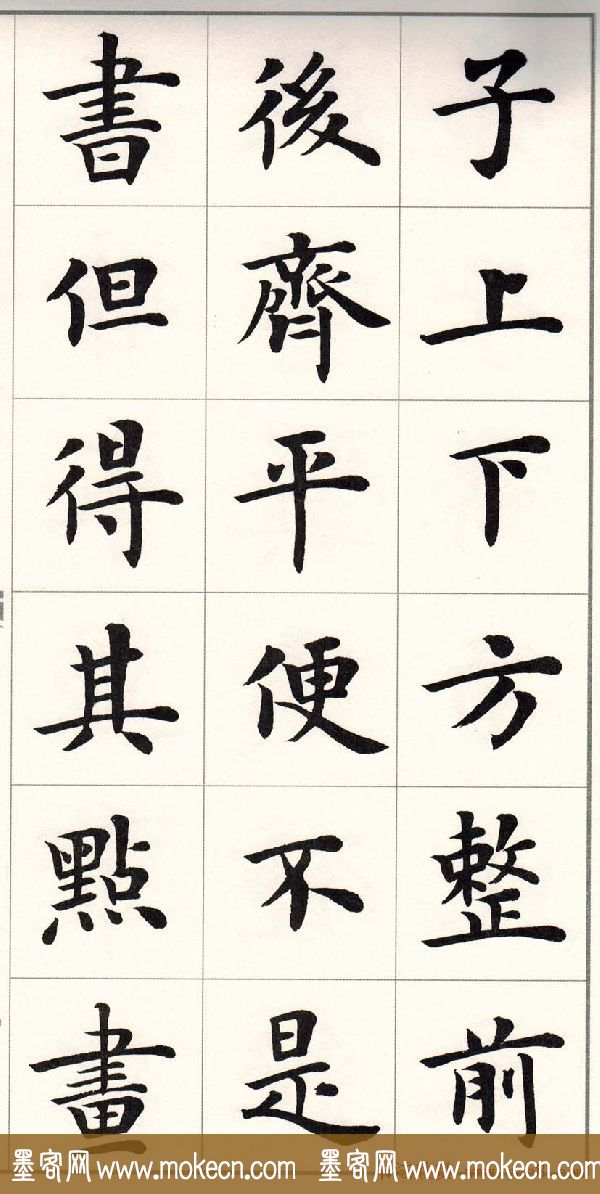 子上下方整前
後齊平便不是
書但得其點畫
墨客网 www.mokecn.com 墨客网 www.mokecn.com